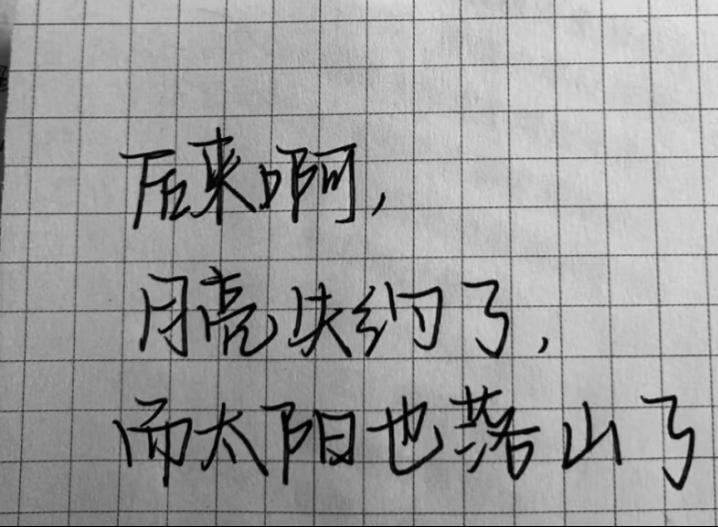 后来啊,
月亮失约了,
而太阳也落山了